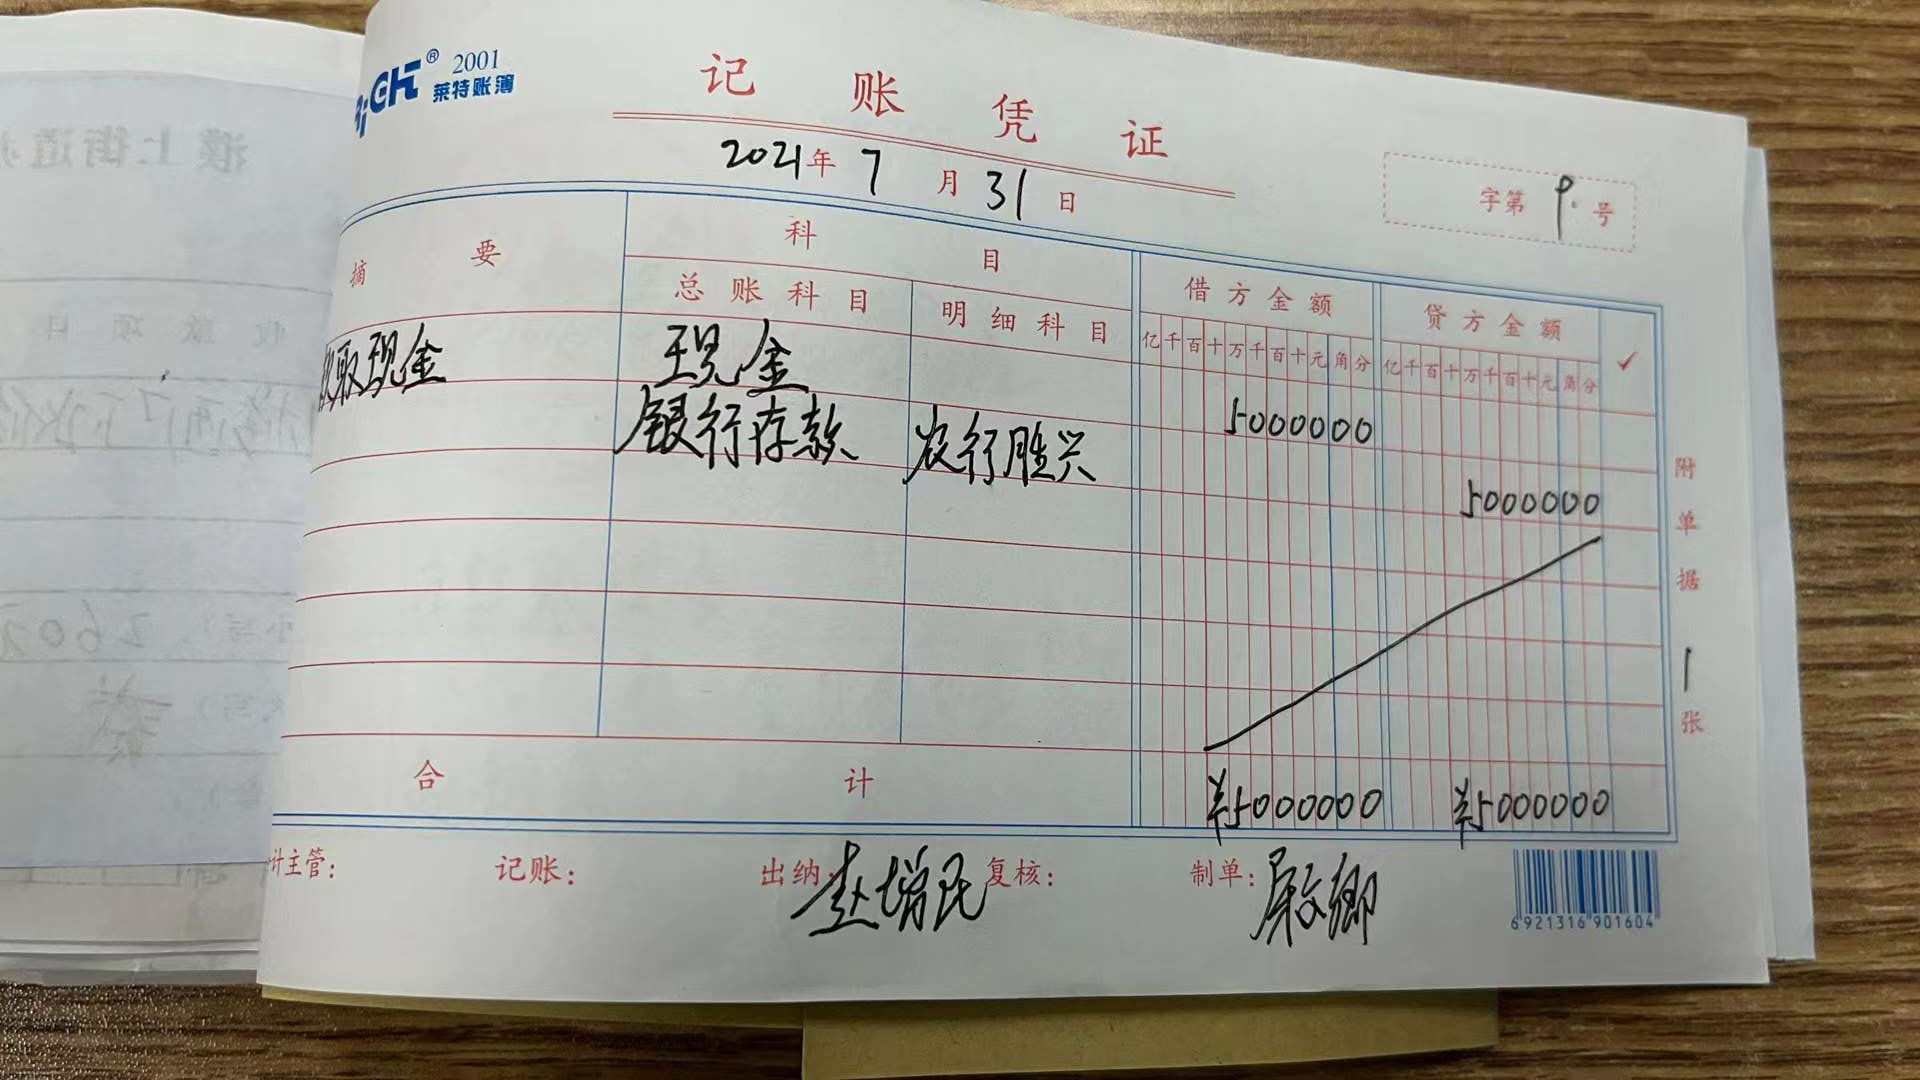 2001
莱特账簿
记账凭证
2021年7月31日
字第9号
摘要
科目
借方金额
贷方金额
✓
总账科目
明细科目
亿千百十万千百十元角分
亿千百十万千百十元角分
取现金
现金
5000000
银行存款
农行胜兴
5000000
附单据1张
合计
¥5000000
¥5000000
计主管:
记账:
出纳:
赵增民
复核:
制单:
6921316901604
濮上街道
收款项目